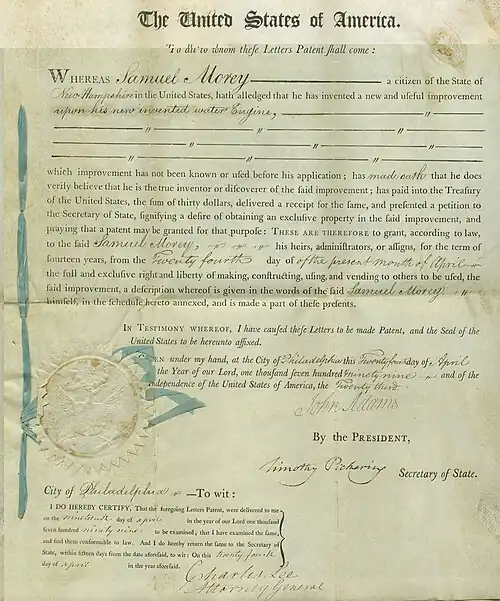 The United States of America.
To all to whom theſe Letters Patent ſhall come:
WHEREAS Samuel Morey a citizen of the State of
New Hampshire in the United States, hath alledged that he has invented a new and uſeful improvement
upon his new invented water Engine,
which improvement has not been known or uſed before his application; has made oath that he does
verily believe that he is the true inventor or diſcoverer of the ſaid improvement; has paid into the Treaſury
of the United States, the ſum of thirty dollars, delivered a receipt for the ſame, and preſented a petition to
the Secretary of State, ſignifying a deſire of obtaining an excluſive property in the ſaid improvement, and
praying that a patent may be granted for that purpoſe: THESE ARE THEREFORE to grant, according to law,
to the ſaid Samuel Morey, his heirs, adminiſtrators, or aſſigns, for the term of
fourteen years, from the Twenty fourth day of of the present month of April
the full and excluſive right and liberty of making, conſtructing, uſing, and vending to others to be uſed, the
ſaid improvement, a deſcription whereof is given in the words of the ſaid Samuel Morey
himſelf, in the ſchedule hereto annexed, and is made a part of theſe preſents.
IN TESTIMONY WHEREOF, I have cauſed theſe Letters to be made Patent, and the Seal of the
United States to be hereunto affixed.
EN under my hand, at the City of Philadelphia this Twenty fourth day of April
the Year of our Lord, one thouſand ſeven hundred ninety nine and of the
Independence of the United States of America, the Twenty third.
John Adams
By the PRESIDENT,
Timothy Pickering Secretary of State.
City of Philadelphia To wit:
I DO HEREBY CERTIFY, That the foregoing Letters Patent, were delivered to me
on the nineteenth day of april in the year of our Lord one thouſand
ſeven hundred ninety nine to be examined; that I have examined the ſame,
and find them conformable to law. And I do hereby return the ſame to the Secretary of
State, within fifteen days from the date aforeſaid, to wit: On this twenty fourth
day of april in the year aforeſaid.
Charles Lee
Attorney General